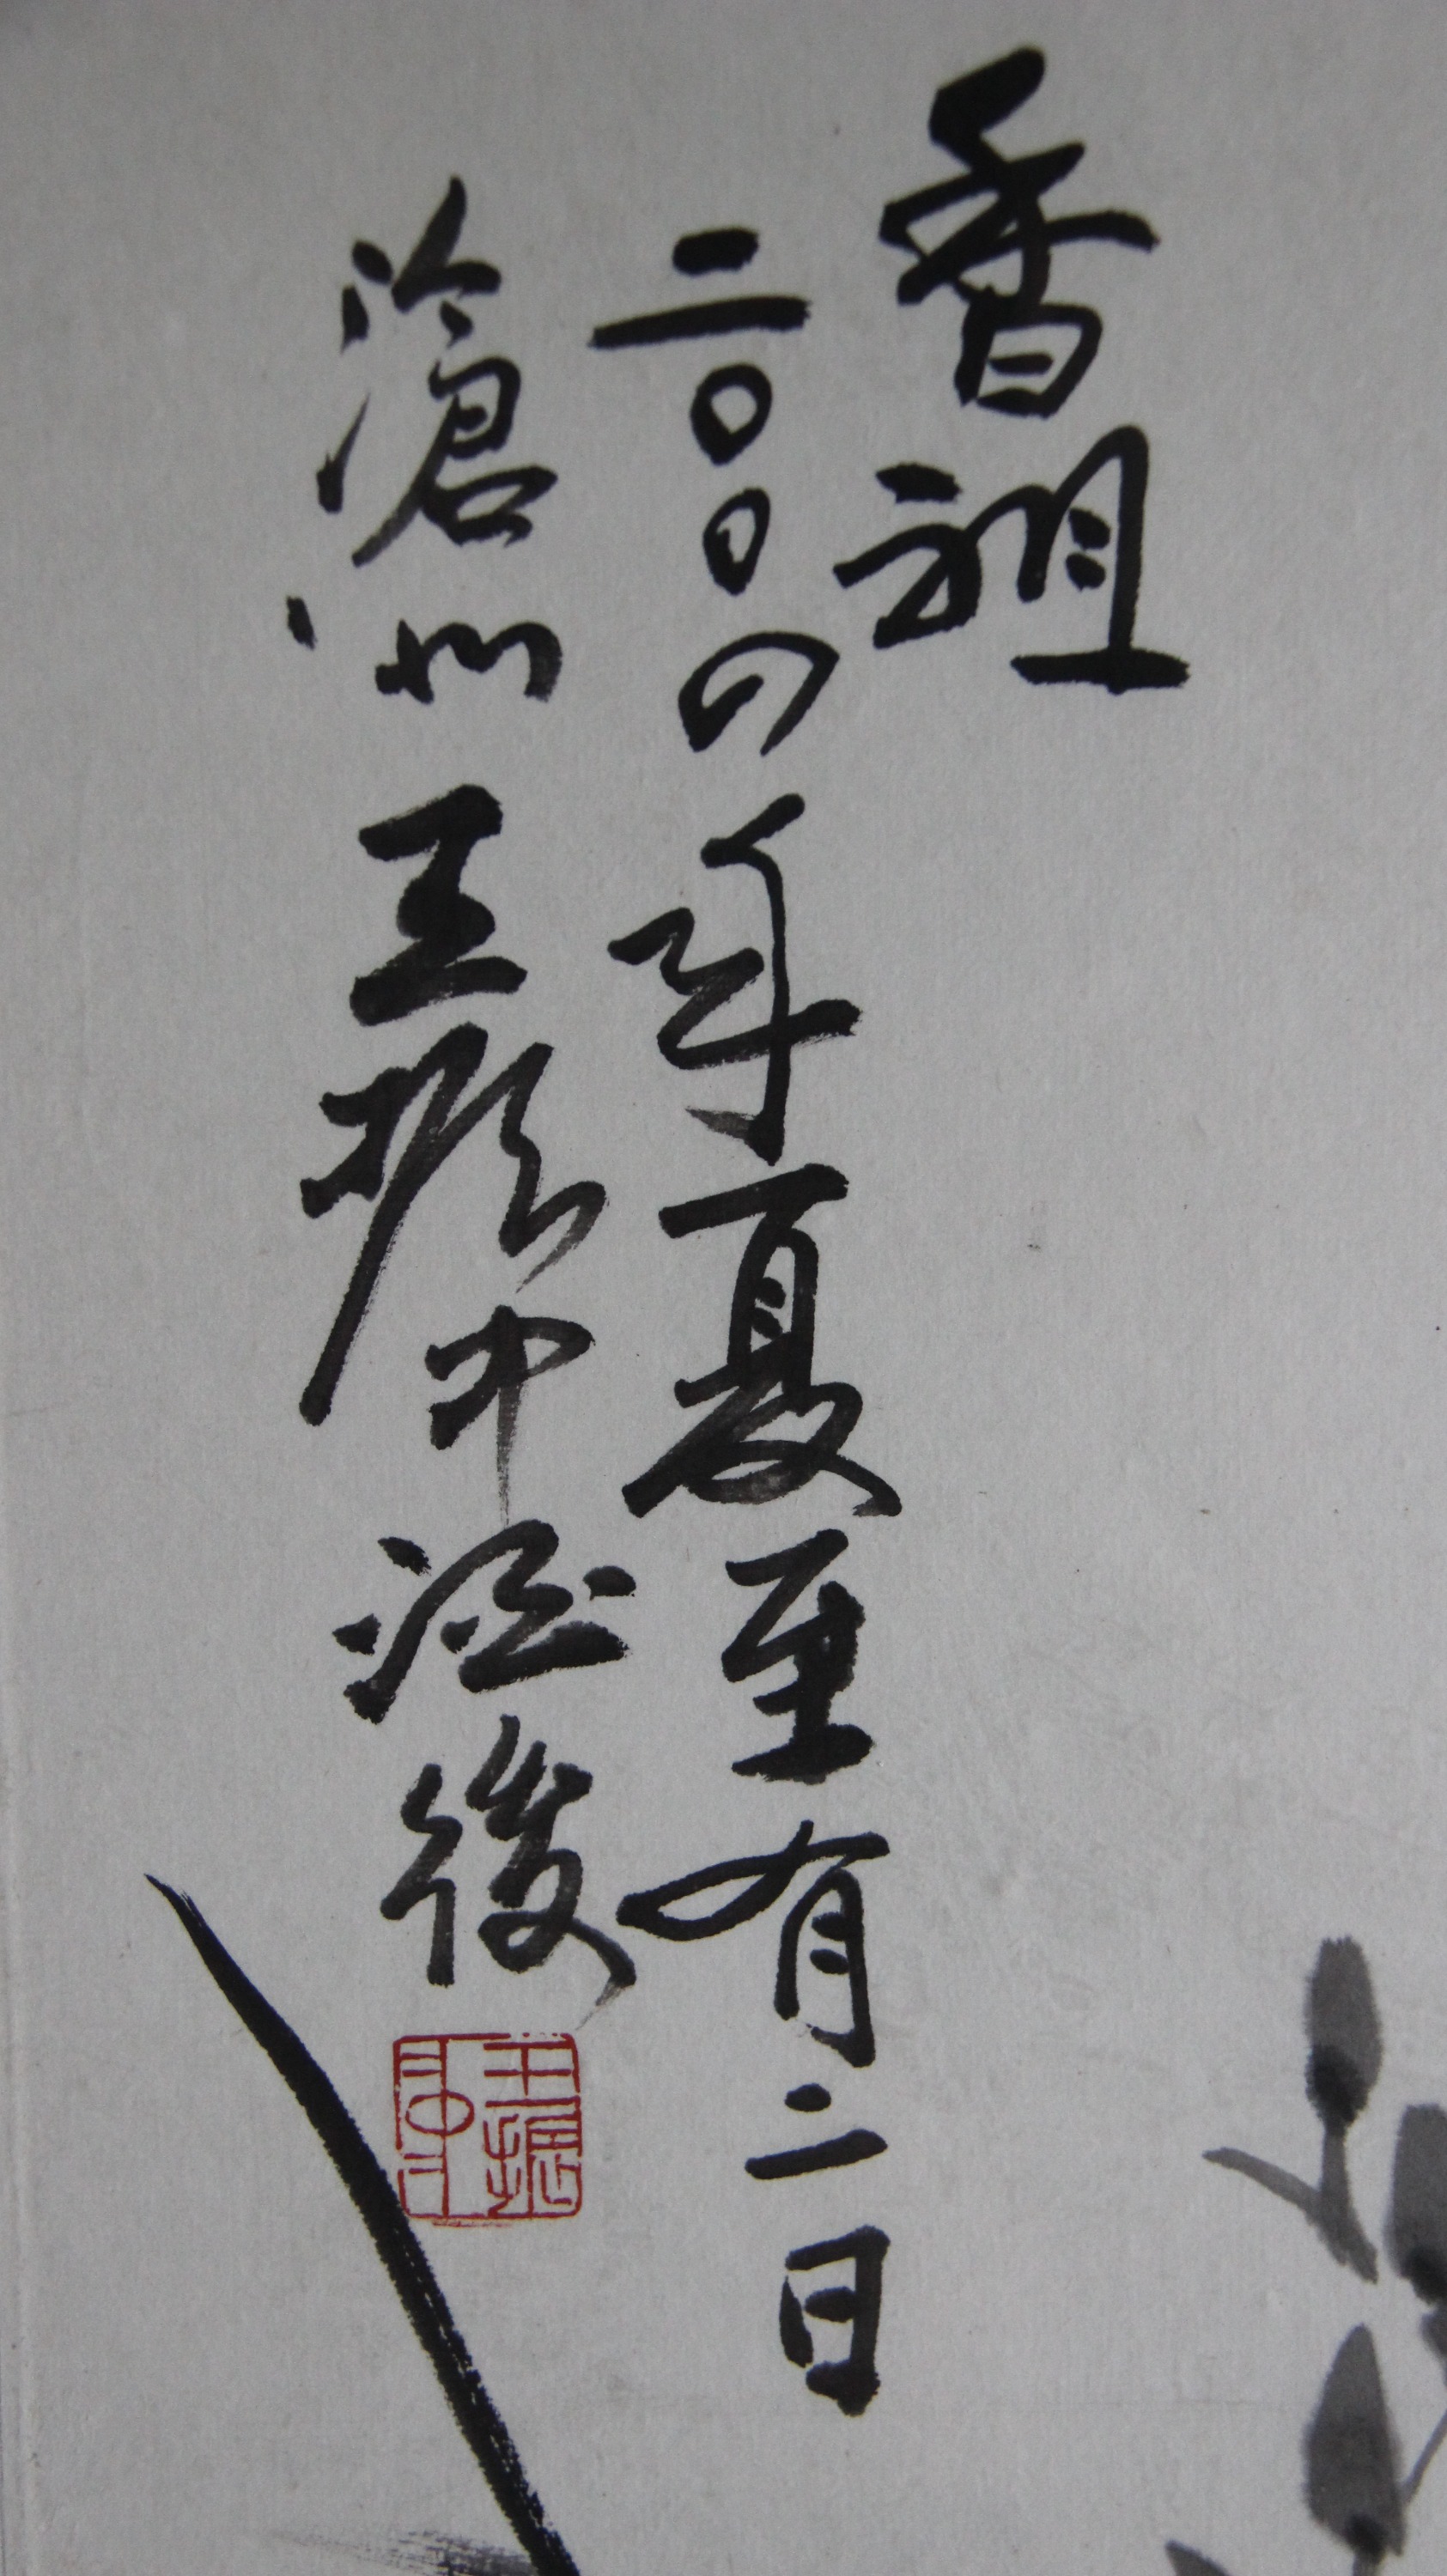 香祖
二〇〇四年夏至有二日
滄州王振中酒後
王振中